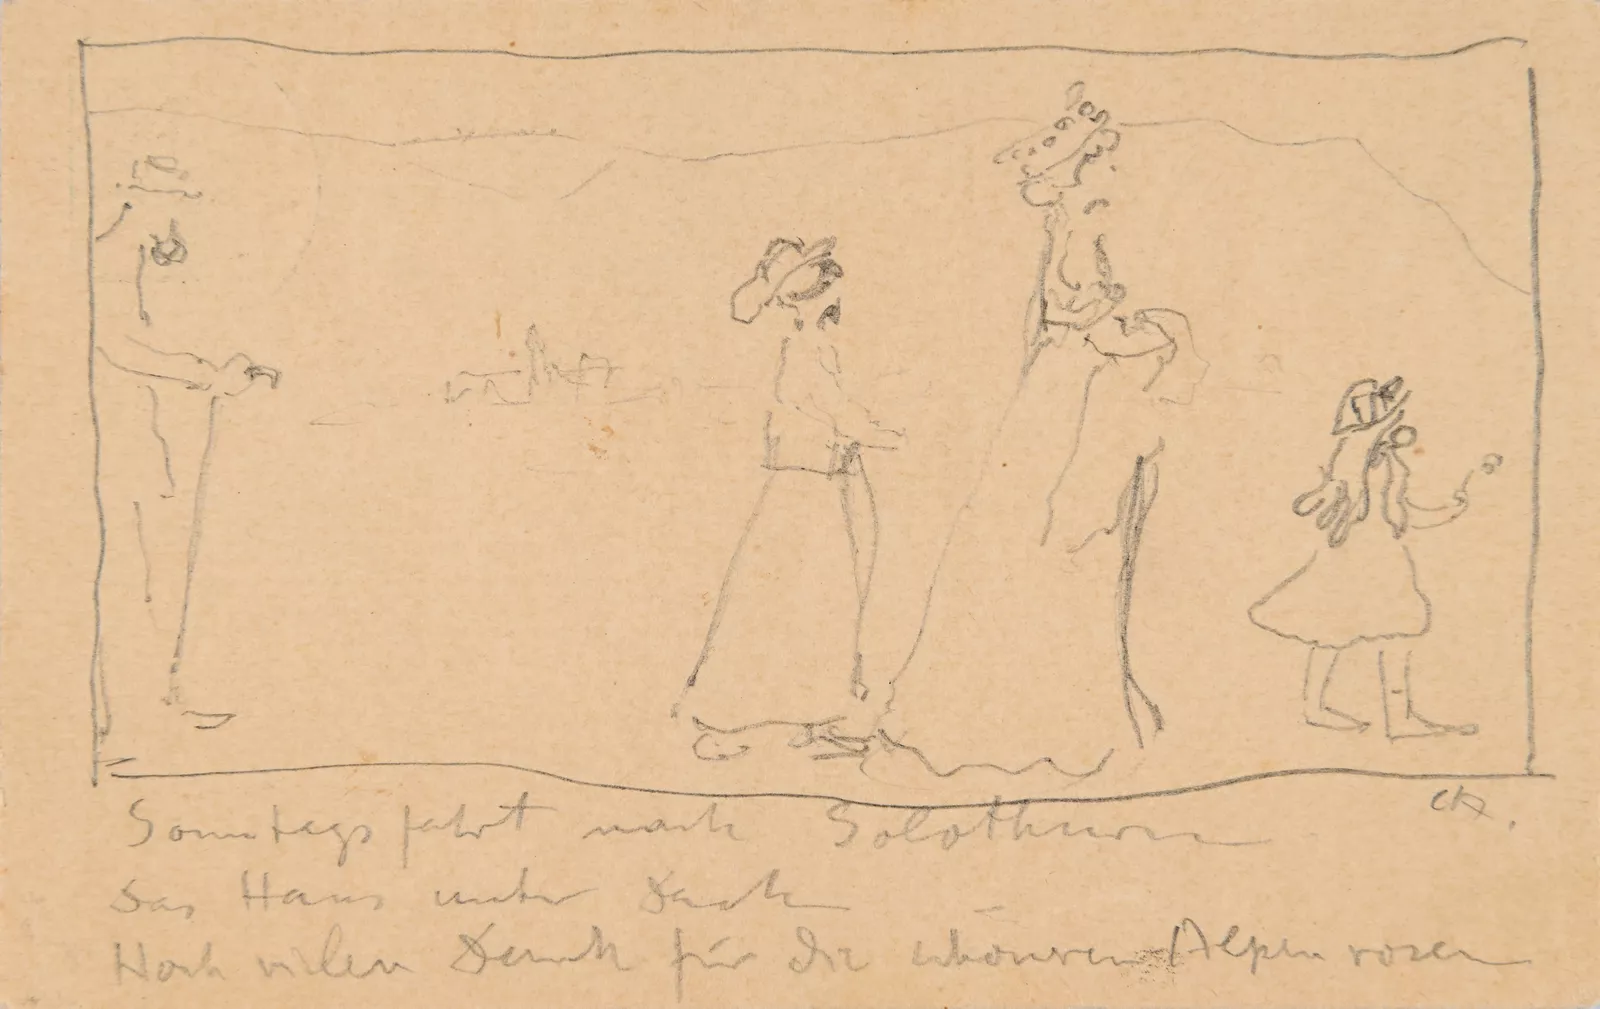 CA.
Sonntagsfahrt nach Solothurn
Das Haus unter Dach
Noch vielen Dank für die schönen Alpenrosen